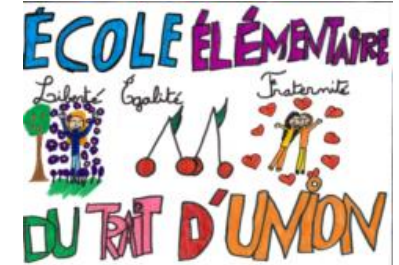 ÉCOLE ÉLÉMENTAIRE
Liberté Égalité Fraternité
DU TRAIT D'UNION